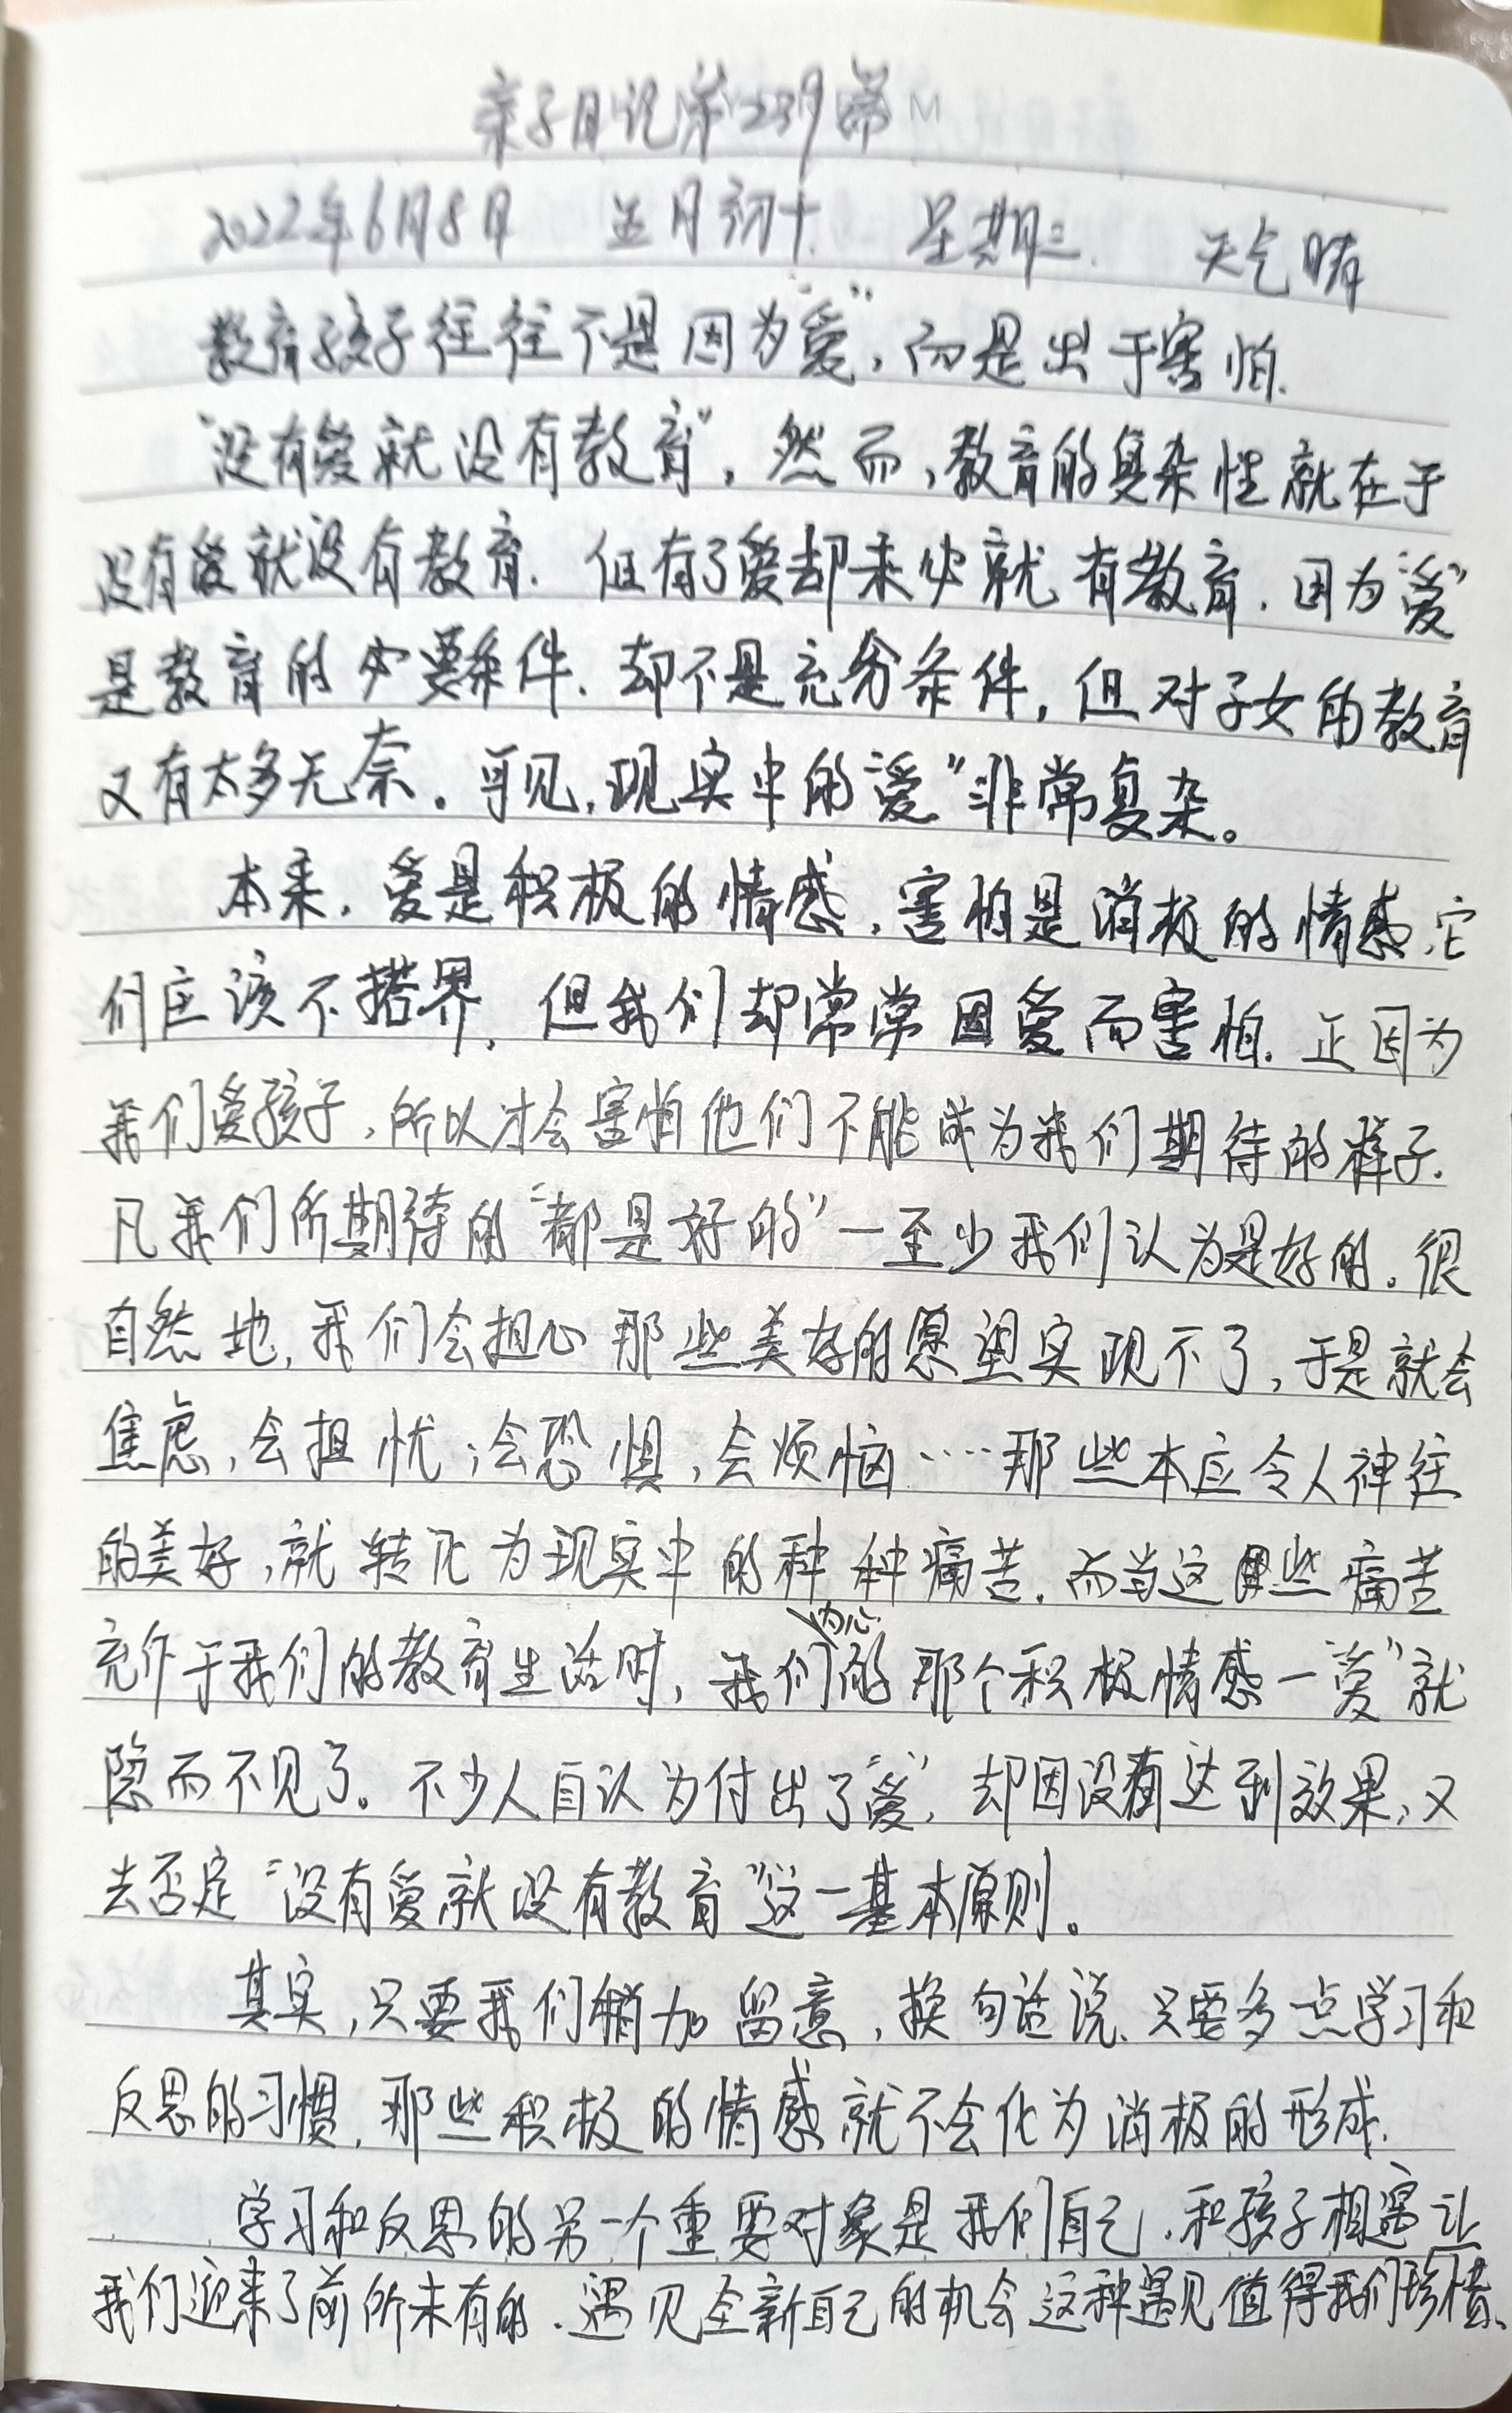 亲子日记第239篇
2022年6月8日 五月初十 星期三. 天气晴
教育孩子往往不是因为“爱”,而是出于害怕.
“没有爱就没有教育”,然而,教育的复杂性就在于
没有爱就没有教育.但有了爱却未必就有教育.因为“爱”
是教育的必要条件.却不是充分条件,但对子女的教育
又有太多无奈。可见,现实中的“爱”非常复杂。
本来.爱是积极的情感,害怕是消极的情感,它
们应该不搭界,但我们却常常因爱而害怕.正因为
我们爱孩子,所以才会害怕他们不能成为我们期待的样子.
凡我们所期待的“都是好的”一至少我们认为是好的。很
自然地,我们会担心那些美好的愿望实现不了,于是就会
焦虑,会担忧;会恐惧,会烦恼……那些本应令人神往
的美好,就转化为现实中的种种痛苦.而当这些痛苦
充作于我们的教育生活时,我们内心的那个积极情感一“爱”就
隐而不见了。不少人自认为付出了“爱”,却因没有达到效果,又
去否定“没有爱就没有教育”这一基本原则。
其实,只要我们稍加留意,换句话说.只要多一点学习和
反思的习惯,那些积极的情感就不会化为消极的形成.
学习和反思的另一个重要对象是我们自己.和孩子相遇让
我们迎来了前所未有的.遇见全新自己的机会这种遇见值得我们珍惜.